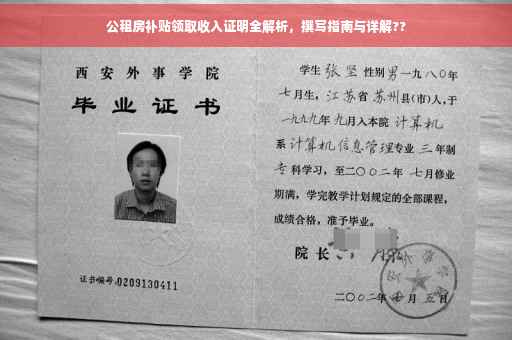 公租房补贴领取收入证明全解析，撰写指南与详解??
西安外事学院
毕业证书
证书编号:0209130411
学生 张坚 性别 男 一九八〇年
七月生，江苏省苏州县(市)人，于
一九九九年九月入本院 计算机
系 计算机信息管理专业 三 年制
专科学习，至二〇〇二年 七月修业
期满，学完教学计划规定的全部课程，
成绩合格，准予毕业。
院长
二〇〇二年 七月 五日